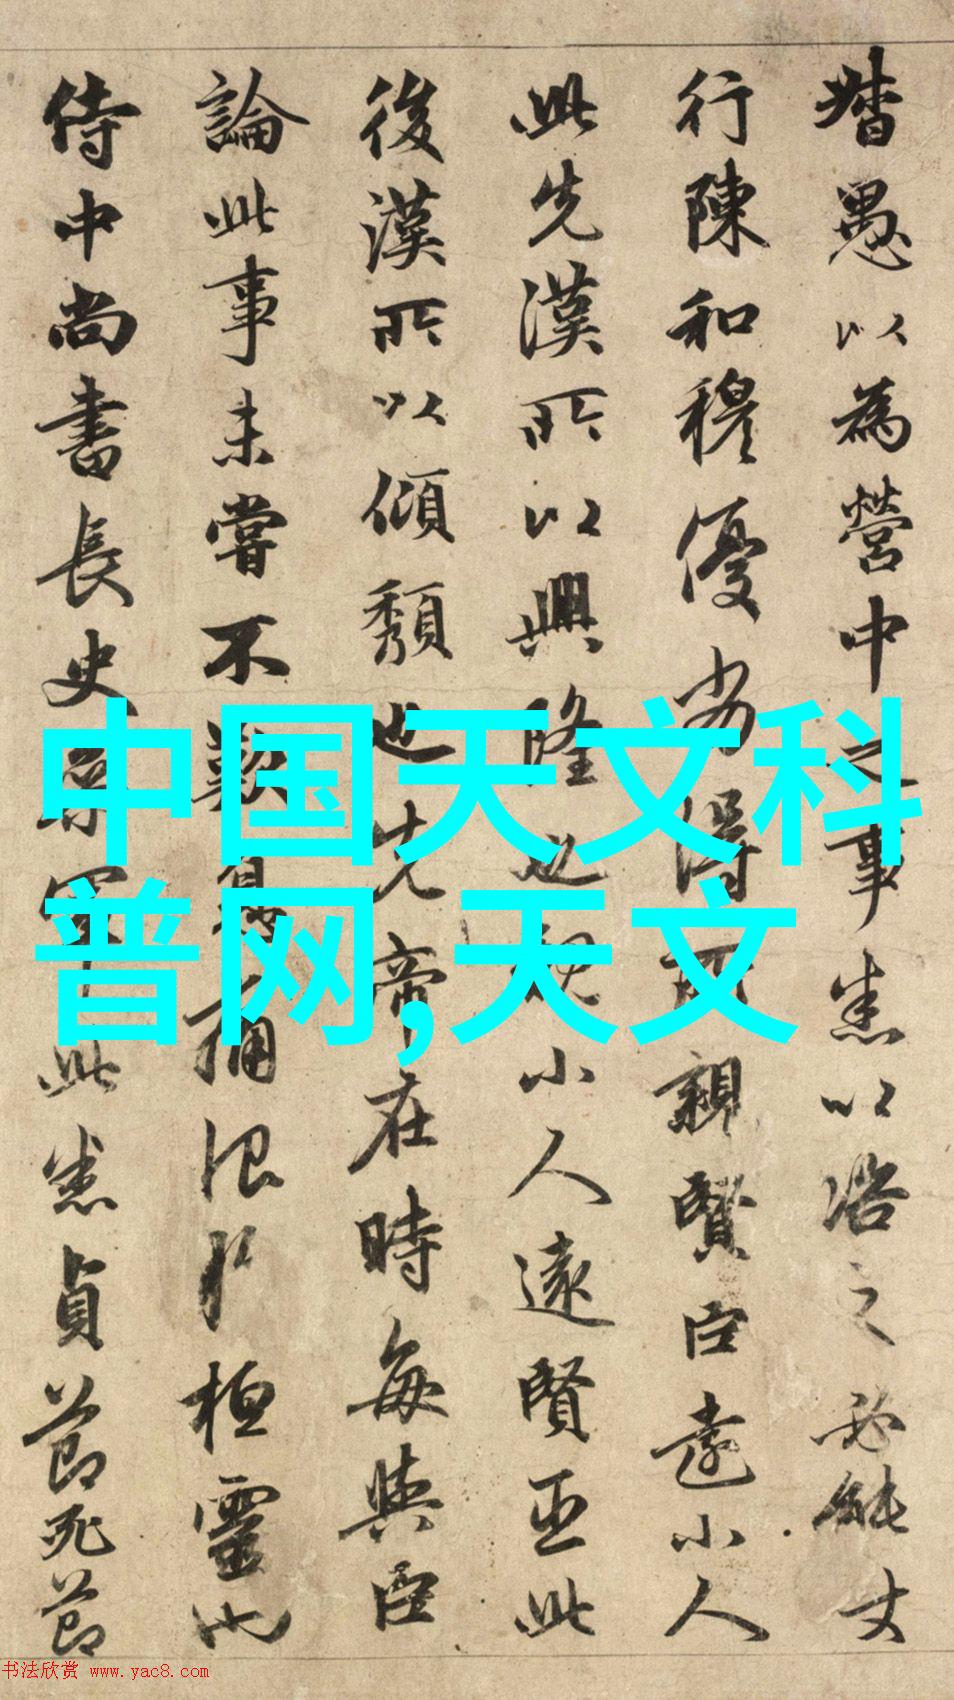 督愚以為營中之事悉以諮之必能使
行陳和穆優劣得所親賢臣遠小人
此先漢所以興隆也親小人遠賢臣此
後漢所以傾頹也先帝在時每與臣
論此事未嘗不歎息痛恨於桓靈也
侍中尚書長史參軍此悉貞節死節
中国天文科
普网,天文
书法欣赏 www.yac8.com